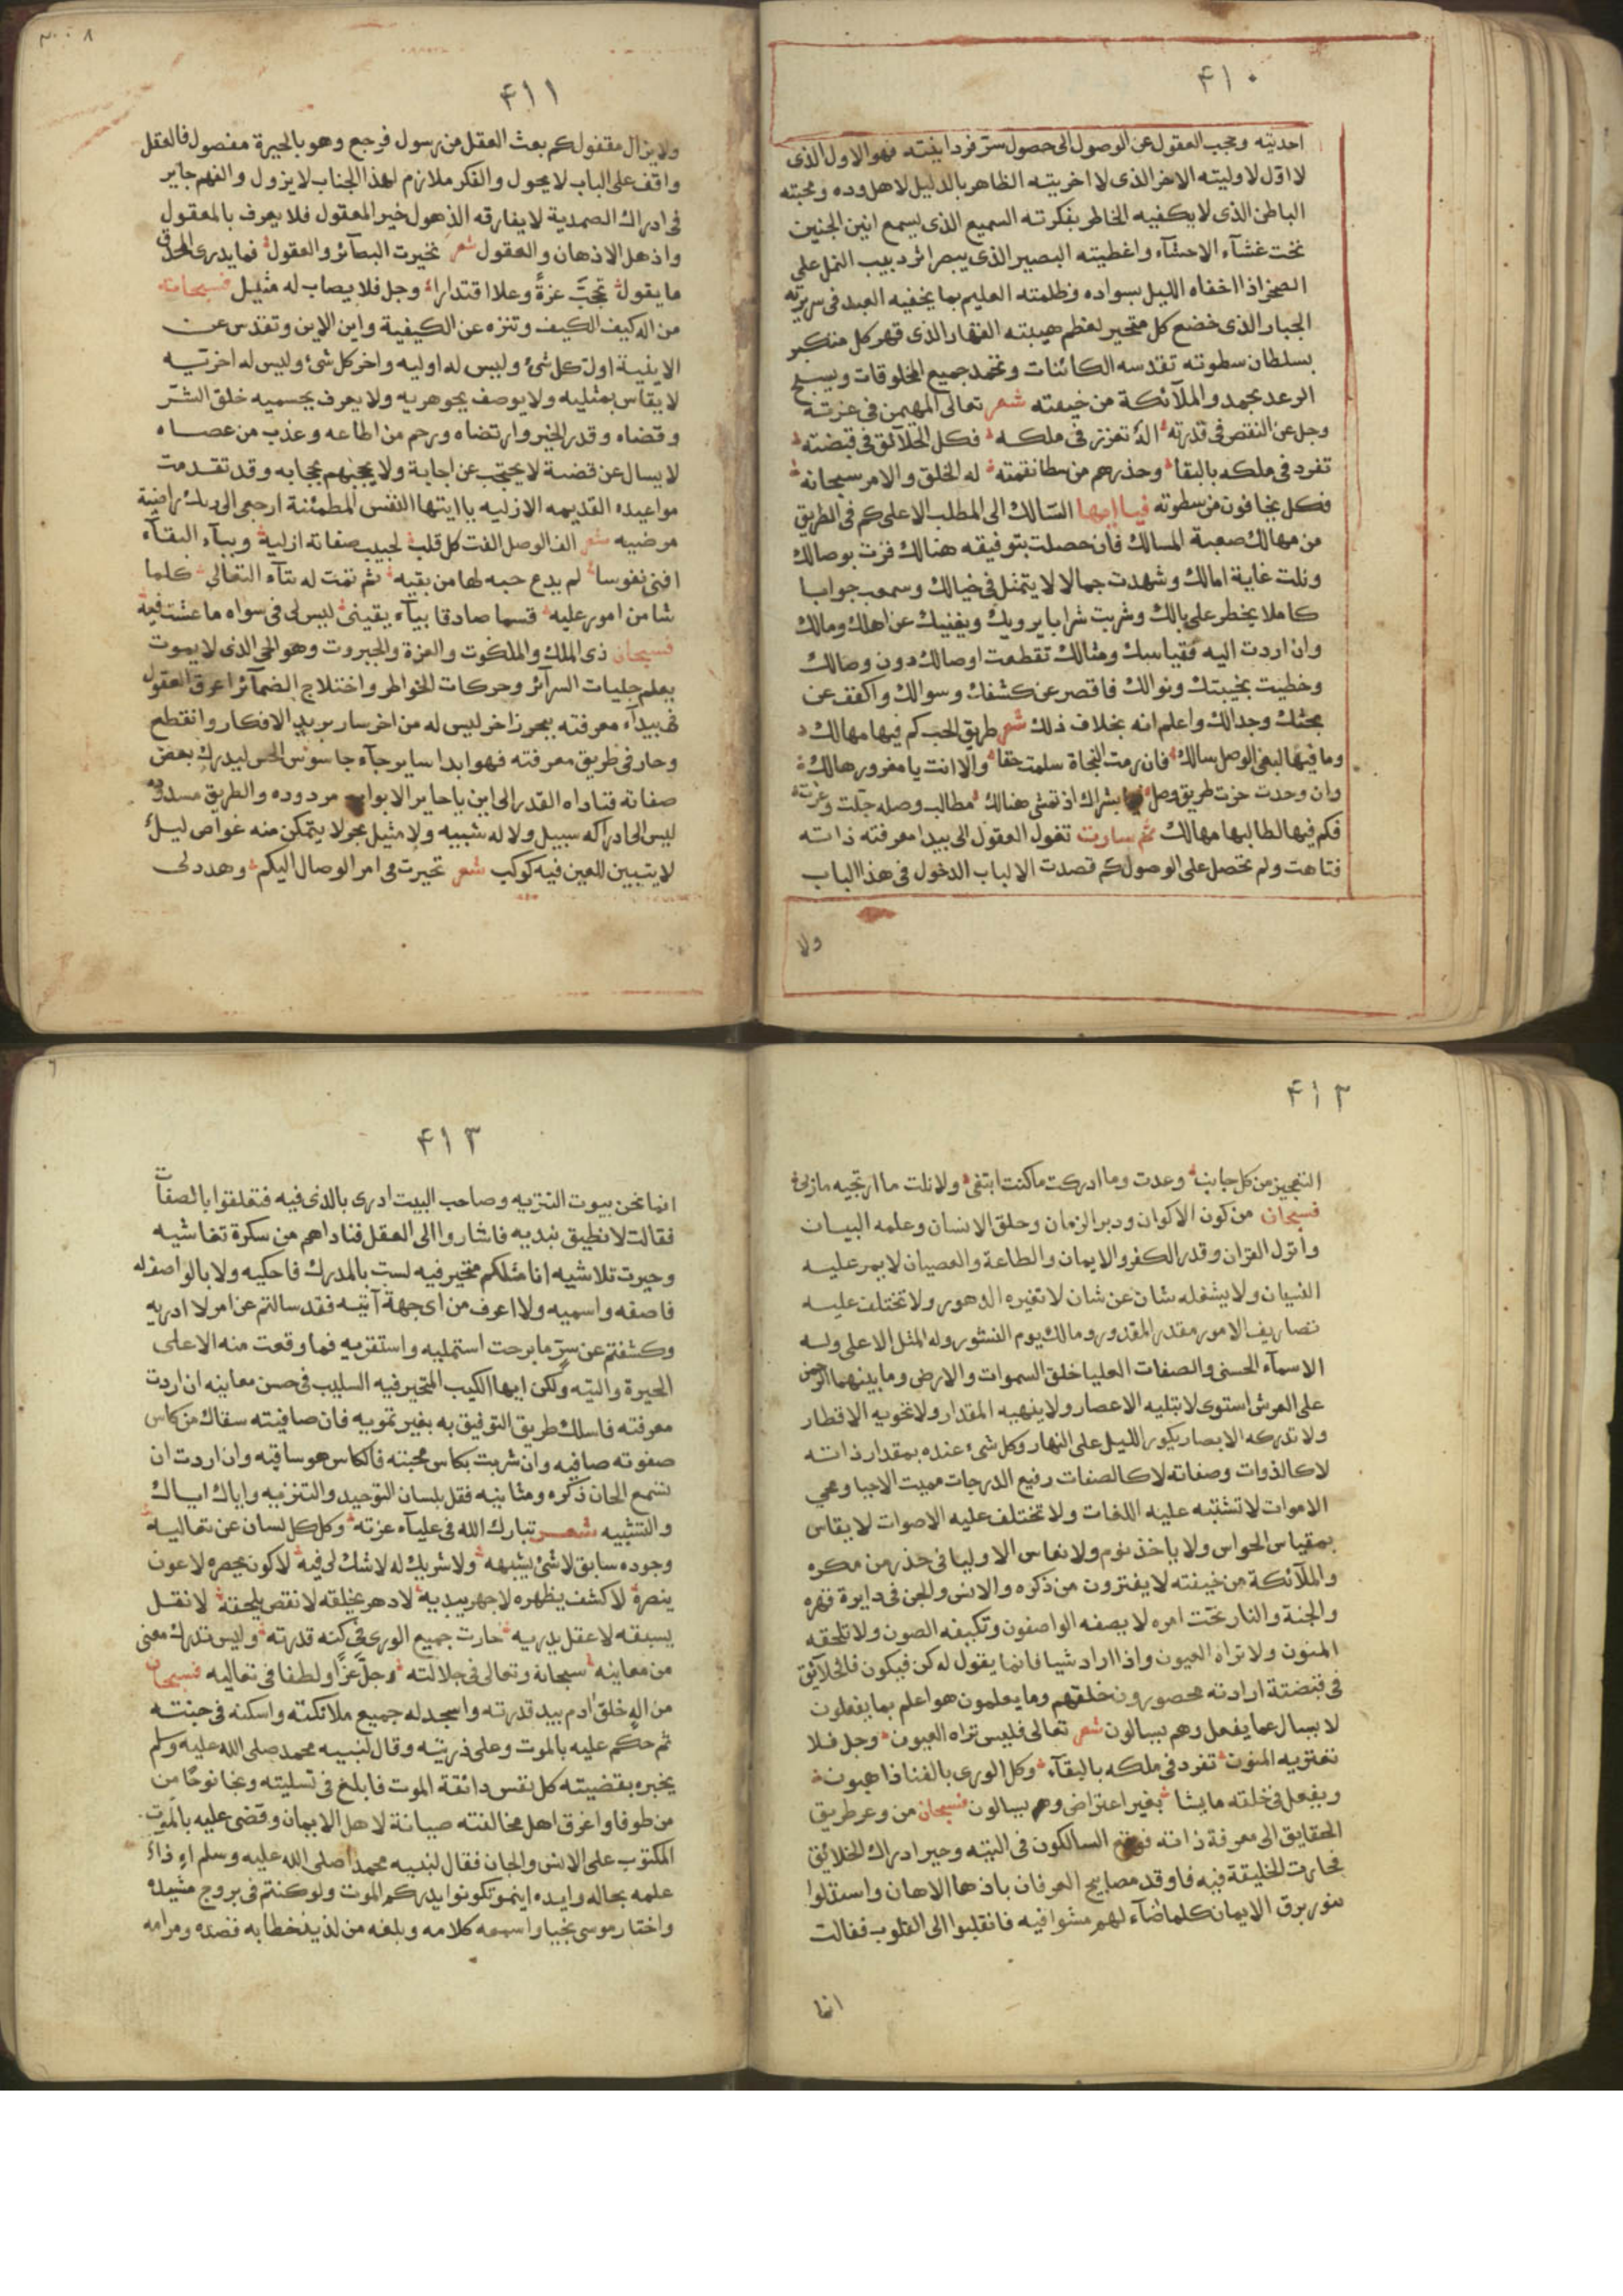 ٤١٠
احديته وحجب العقول عن الوصول الى حصول سر فردانيته فهو الاول الذى
لا اول لاوليته الاخر الذى لا اخريته الظاهر بالدليل لاهل وده ومحبته
الباطن الذى لا يكفيه الخاطر بفكرته السميع الذى يسمع انين الجنين
تحت غشآء الاحشآء واغطيته البصير الذى يبصر اثر دبيب النمل على
الصخر اذا اخفاه الليل بسواده وظلمته العليم بما يخفيه العبد فى سريرته
الجبار الذى خضع كل متجبر لعظم هيبته القهار الذى قهر كل متكبر
بسلطان سطوته تقدسه الكائنات وتحمد جميع المخلوقات ويسبح
الرعد بحمده والملآئكة من خيفته شعر تعالى المهيمن فى عزته
وجل عن النقص فى قدرته اله تعزز فى ملكه فكل الخلآئق فى قبضته
تفرد فى ملكه بالبقا وحذرهم من سطا نقمته له الخلق والامر سبحانه
فكل يخافون من سطوته فيا ايها السالك الى المطلب الاعلى كم فى الطريق
من مهالك صعبة المسالك فان حصلت بتوفيقه هنالك فزت بوصالك
ونلت غاية امالك وشهدت جمالا لا يتمثل فى خيالك وسمعت جوابا
كاملا يخطر على بالك وشربت شرابا يرويك ويغنيك عن اهلك ومالك
وان اردت اليه فقياسك ومثالك تقطعت اوصالك دون وصالك
وخطيت بخيبتك ونوالك فاقصر عن كشفك وسوالك واكفف عن
بحثك وجدالك واعلم انه بخلاف ذلك شعر طريق الحب كم فيها مهالك
وما فيها لبغى الوصل سالك فان رمت النجاة سلمت حقا والا انت يا مغرور هالك
وان وحدت حزت طريق وصل بشراك اذ تمشى هنالك مطالب وصله جلت وعزت
فكم فيها لطالبها مهالك ثم سارت تغول العقول الى بيدا معرفته ذاته
فتاهت ولم تحصل على الوصول كم قصدت الالباب الدخول فى هذا الباب
ولا
٤١١
ولا يزال مقفول كم بعث العقل من رسول فرجع وهو بالحيرة مفصول فالعقل
واقف على الباب لا يحول والفكر ملازم لهذا الجناب لا يزول والفهم جآير
فى ادراك الصمدية لا يفارقه الذهول خير المعقول فلا يعرف بالمعقول
واذهل الاذهان والعقول شعر تحيرت البصآئر والعقول فما يدرى المحدق
ما يقول تحجب عزة وعلا اقتدارا وجل فلا يصاب له مثيل فسبحانه
من اله كيف الكيف وتنزه عن الكيفية واين الاين وتقدس عن
الاينية اول كل شئ وليس له اوليه واخر كل شئ وليس له اخريه
لا يقاس بمثليه ولا يوصف بجوهريه ولا يعرف بجسميه خلق الشر
وقضاه وقدر الخير وارتضاه ورحم من اطاعه وعذب من عصاه
لا يسال عن قضية لا يحتجب عن اجابة ولا يحجبهم بحجابه وقد تقدمت
مواعيده القديمه الازليه يا ايتها النفس المطمئنة ارجعى الى ربك راضية
مرضيه شعر الف الوصل الفت كل قلب لحبيب صفاته ازلية وببآء البقآء
افنى نفوسا لم يدع حبه لها من بقيه ثم تمت له بتآء التعالى كلما
شا من امور عليه قسما صادقا بيآء يقينى ليس لى فى سواه ما عشت فيه
فسبحان ذى الملك والملكوت والعزة والجبروت وهو الحى الذى لا يموت
يعلم جليات السرآئر وحركات الخواطر واختلاج الضمآئر اعرق العقول
فى بيدآء معرفته ببحر زاخر ليس له من اخر سار بريد الافكار وانقطع
وحار فى طريق معرفته فهو ابدا ساير جآء جاسوس الحس ليدرك بعض
صفاته فناداه القدر الى اين يا حاير الابواب مردوده والطريق مسدوده
ليس الى ادراكه سبيل ولا له شبيه ولا مثيل بحر لا يتمكن منه غواص ليل
لا يتبين للعين فيه كوكب شعر تحيرت فى امر الوصال اليكم وهددنى
٤١٢
التعجيز من كل جانب وعدت وما ادركت ما كنت ابتغى ولا نلت ما ارتجيه ماربى
فسبحان من كون الاكوان ودبر الزمان وخلق الانسان وعلمه البيان
وانزل القران وقدر الكفر والايمان والطاعة والعصيان لا يمر عليه
النسيان ولا يشغله شان عن شان لا تغيره الدهور ولا تختلف عليه
تصاريف الامور مقدر المقدور ومالك يوم النشور وله المثل الاعلى وله
الاسمآء الحسنى والصفات العليا خلق السموات والارض وما بينهما الرحمن
على العرش استوى لا تبليه الاعصار ولا ينهيه المقدار ولا تحويه الاقطار
ولا تدركه الابصار يكور الليل على النهار وكل شئ عنده بمقدار ذاته
لا كالذوات وصفاته لا كالصفات رفيع الدرجات مميت الاحيا ومحيى
الاموات لا تشتبه عليه اللغات ولا تختلف عليه الاصوات لا يقاس
بمقياس الحواس ولا ياخذ نوم ولا نعاس الاوليا فى حذر من مكره
والملآئكة من خيفته لا يفترون من ذكره والانس والجن فى دايرة قهره
والجنة والنار تحت امره لا يصفه الواصفون وتكيفه الصون ولا تلحقه
المنون ولا تراه العيون واذا اراد شيا فانما يقول له كن فيكون فالخلآئق
فى قبضتة ارادته محصورون خلقهم وما يعلمون هو اعلم بما يفعلون
لا يسال عما يفعل وهم يسالون شعر تعالى فليس تراه العيون وجل فلا
تعتريه المنون تفرد فى ملكه بالبقآء وكل الورى بالفنا ذاهبون
ويفعل فى خلقه ما يشا بغير اعتراض وهم يسالون فسبحان من وعر طريق
الحقايق الى معرفة ذاته السالكون فى التيه وحير ادراك الخلائق
فحارت الخليقة فيه فاوقد مصابيح العرفان باذهان الاهان واستقلوا
بنور برق الايمان كلما اضآء لهم مشوا فيه فانقلبوا الى القلوب فقالت
انما
٤١٣
انما نحن بيوت التنزيه وصاحب البيت ادرى بالذى فيه فتعلقوا بالصفات
فقالت لا نطيق نبديه فاشاروا الى العقل فناداهم من سكرة تغاشيه
وحيرت تلاشيه انا مثلكم متحير فيه لست بالمدرك فاحكيه ولا بالواصف له
فاصفه واسميه ولا اعرف من اى جهة آتيه فقد سالتم عن امر لا ادريه
وكشفتم عن سر ما برحت استمليه واستقريه فما وقعت منه الا على
الحيرة والتيه ولكن ايها الكيب المتحير فيه السليب فى حسن معانيه ان اردت
معرفته فاسلك طريق التوفيق به بغير تمويه فان صافيته سقاك من كاس
صفوته صافيه وان شربت بكاس محبته فالكاس هو ساقيه وان اردت ان
تسمع الحان ذكره ومثانيه فقل بلسان التوحيد والتنزيه واياك اياك
والتشبيه شعر تبارك الله فى عليآء عزته وكل كل لسان عن تعاليه
وجوده سابق لا شئ يشبهه ولا شريك له لا شك لى فيه لا كون يحصره لا عون
ينصره لا كشف يظهره لا جهر يبديه لا دهر يخلقه لا نقص يلحقه لا نقل
يسبقه لا عقل يدريه حارت جميع الورى فى كنه قدرته وليس تدرك معنى
من معانيه سبحانه وتعالى فى جلالته وجل عزا ولطفا فى تعاليه فسبحان
من اله خلق ادم بيد قدرته واسجد له جميع ملائكته واسكنه فى جنته
ثم حكم عليه بالموت وعلى ذريته وقال لنبيه محمد صلى الله عليه وسلم
يخبره بقضيته كل نفس دائقة الموت فابلغ فى تسليته ونجا نوحا من
من طوفا واغرق اهل مخالفته صيانة لاهل الايمان وقضى عليه بالموت
المكتوب على الانس والجان فقال لنبيه محمدا صلى الله عليه وسلم
علمه بحاله وايده اينمو تكونوا يدركم الموت ولو كنتم فى بروج مشيده
واختار موسى نجيا واسمعه كلامه وبلغه من لذيذ خطابه قصده ومرامه